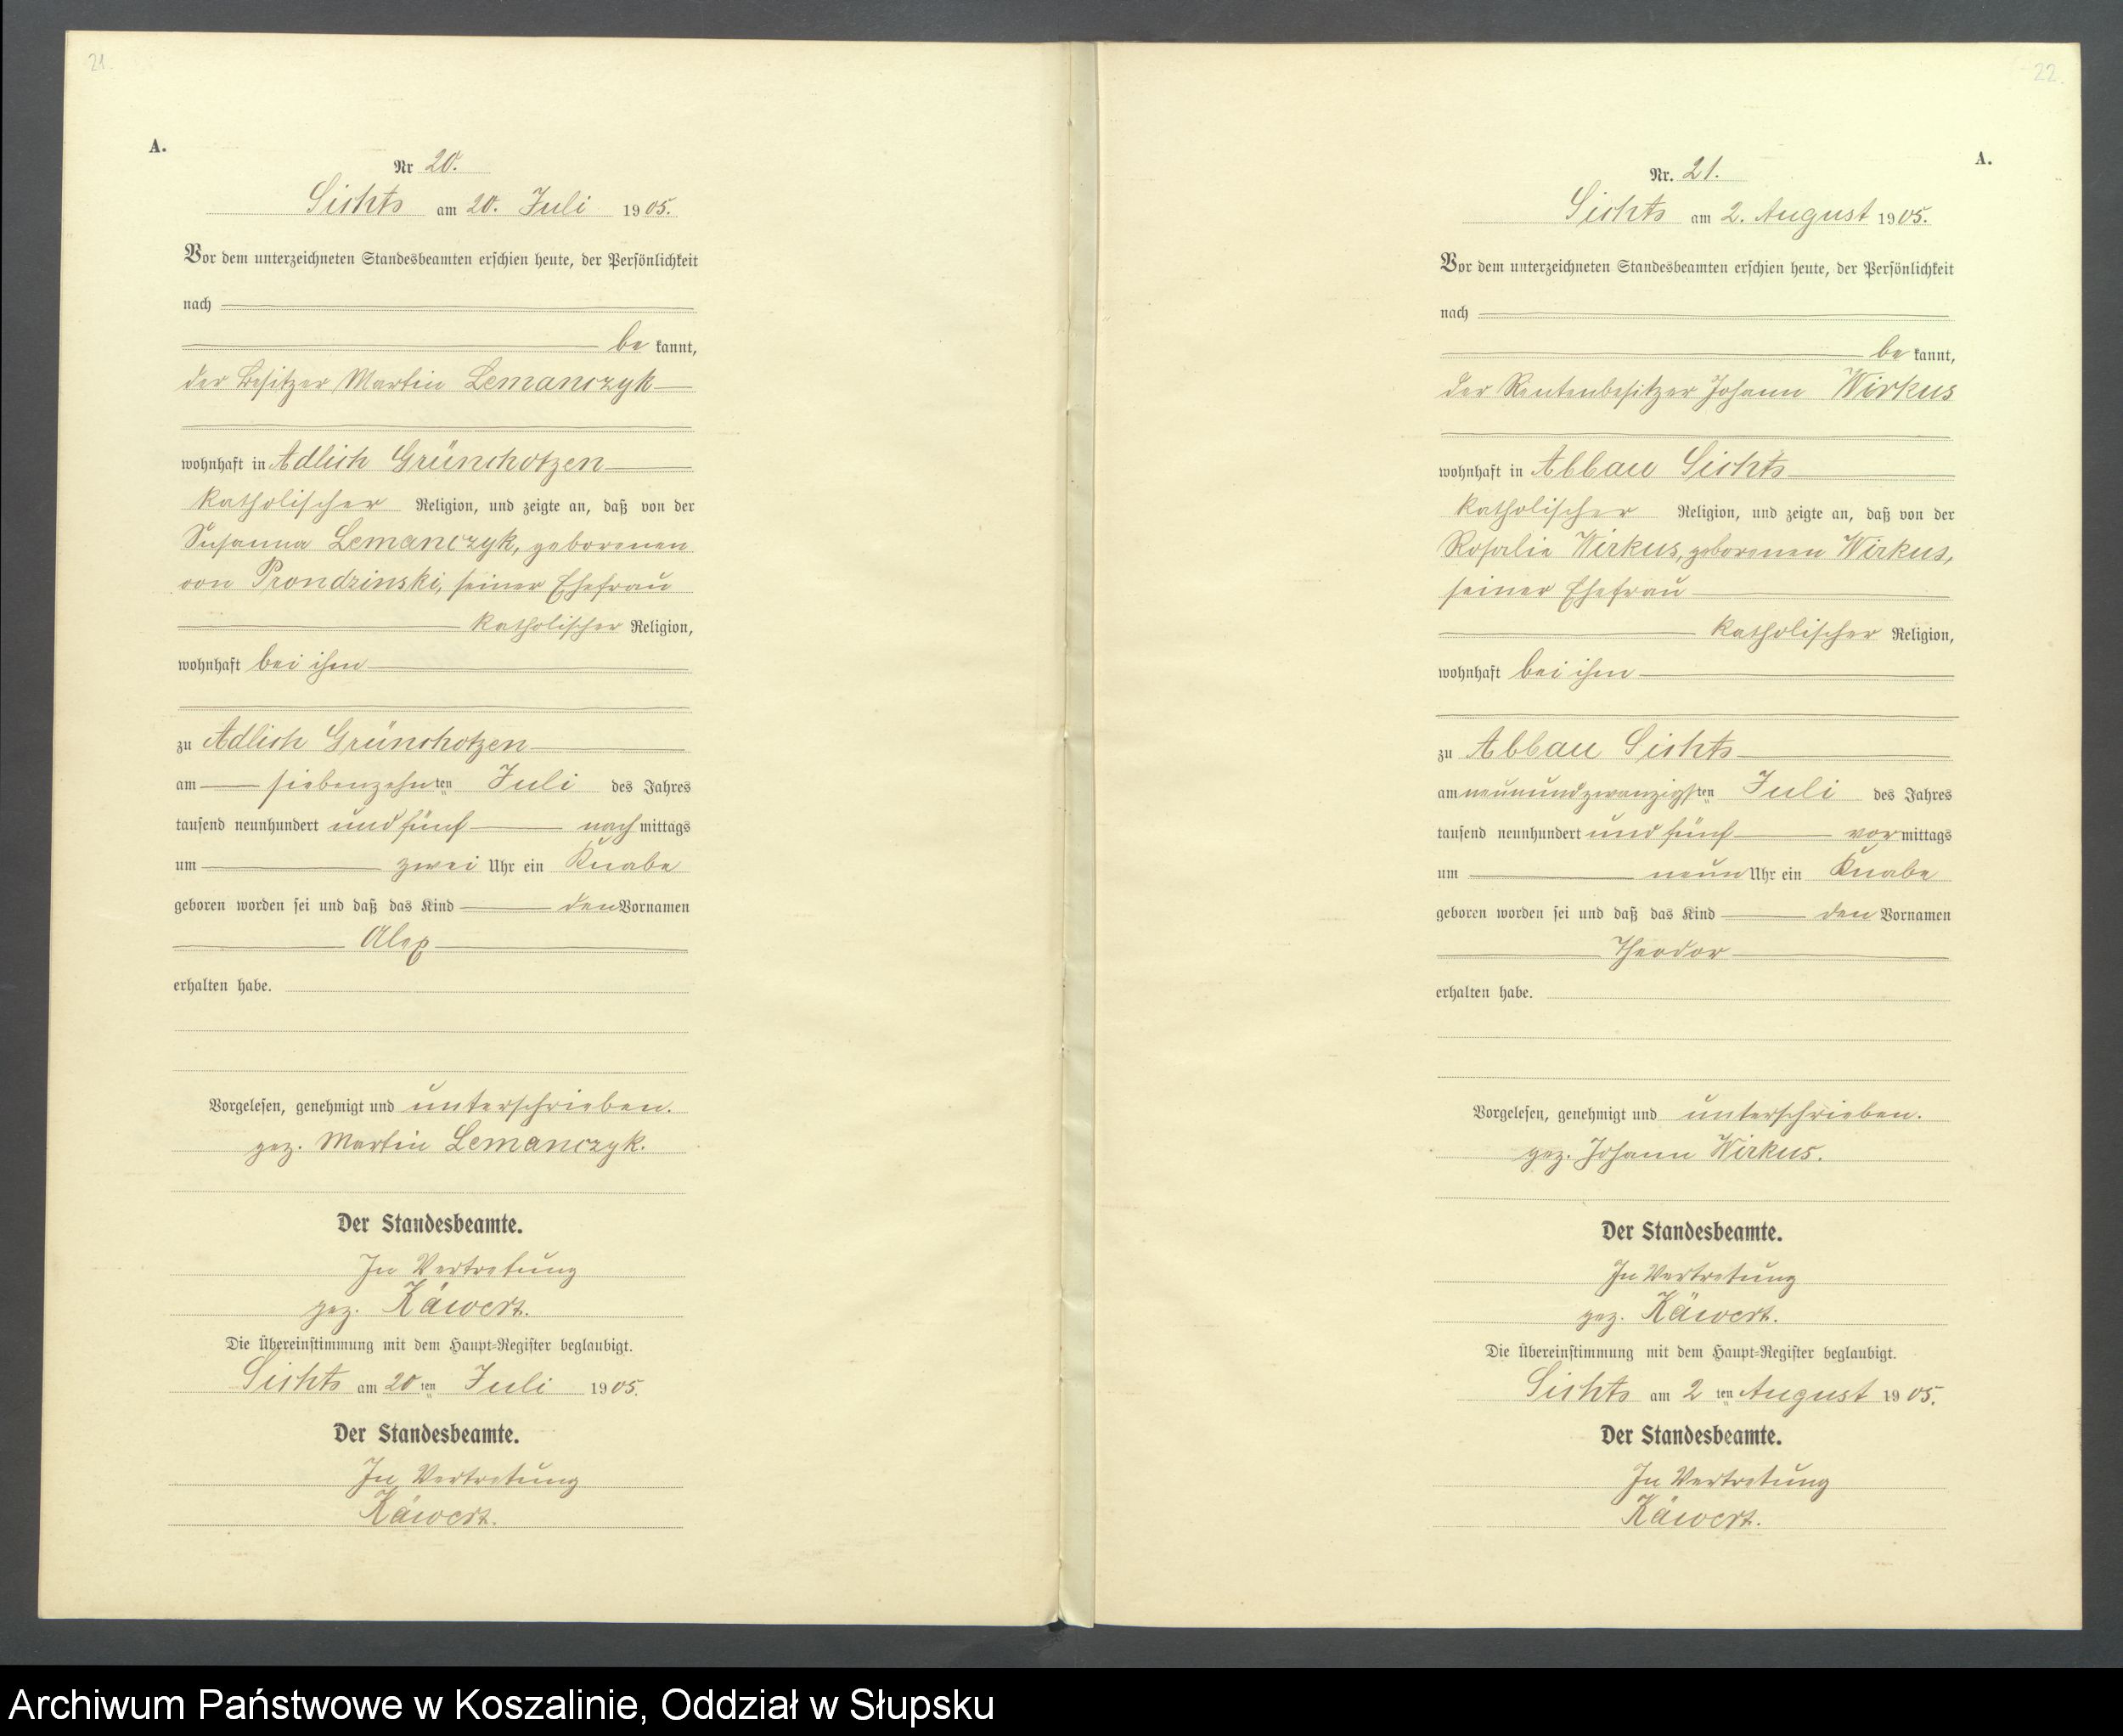 21.
A.
Nr 20.
Sichts am 20. Juli 1905.
Vor dem unterzeichneten Standesbeamten erschien heute, der Persönlichkeit
nach
be kannt,
der Besitzer Martin Lemanczyk
wohnhaft in Adlich Grünchotzen
katholischer Religion, und zeigte an, daß von der
Susanna Lemanczyk, geborenen
von Prondzinski, seiner Ehefrau
katholischer Religion,
wohnhaft bei ihm
zu Adlich Grünchotzen
am siebenzehnten Juli des Jahres
tausend neunhundert und fünf nachmittags
um zwei Uhr ein Knabe
geboren worden sei und daß das Kind den Vornamen
Alex
erhalten habe.
Vorgelesen, genehmigt und unterschrieben.
gez. Martin Lemanczyk.
Der Standesbeamte.
In Vertretung
gez. Käwert.
Die Übereinstimmung mit dem Haupt-Register beglaubigt.
Sichts am 20ten Juli 1905.
Der Standesbeamte.
In Vertretung
Käwert.
22.
A.
Nr. 21.
Sichts am 2. August 1905.
Vor dem unterzeichneten Standesbeamten erschien heute, der Persönlichkeit
nach
be kannt,
der Rentenbesitzer Johann Wirkus
wohnhaft in Abbau Sichts
katholischer Religion, und zeigte an, daß von der
Rosalie Wirkus, geborenen Wirkus,
seiner Ehefrau
katholischer Religion,
wohnhaft bei ihm
zu Abbau Sichts
am neunundzwanzigsten Juli des Jahres
tausend neunhundert und fünf vormittags
um neun Uhr ein Knabe
geboren worden sei und daß das Kind den Vornamen
Theodor
erhalten habe.
Vorgelesen, genehmigt und unterschrieben.
gez. Johann Wirkus.
Der Standesbeamte.
In Vertretung
gez. Käwert.
Die Übereinstimmung mit dem Haupt-Register beglaubigt.
Sichts am 2ten August 1905.
Der Standesbeamte.
In Vertretung
Käwert.
Archiwum Państwowe w Koszalinie, Oddział w Słupsku